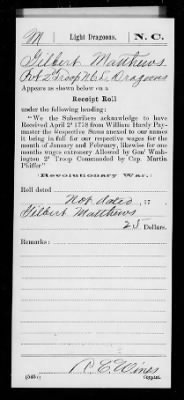 M | Light Dragoons. | N. C.
Gilbert Matthews
Pvt 2 Troop N C L. Dragoons
Appears as shown below on a
Receipt Roll
under the following heading:
"We the Subscribers acknowledge to have
Received April 2d 1778 from William Hardy Pay-
master the Respective Sums annexed to our names
it being in full for our respective wages for the
month of January and February, likewise for one
months wages extreory Allowed by Genl Washington
2d Troop Commanded by Cap. Martin
Phiffer"
(Revolutionary War.)
Roll dated
Not dated, 177 .
Gilbert Matthews
25 Dollars.
Remarks:
R. C. Wines
Copyist.